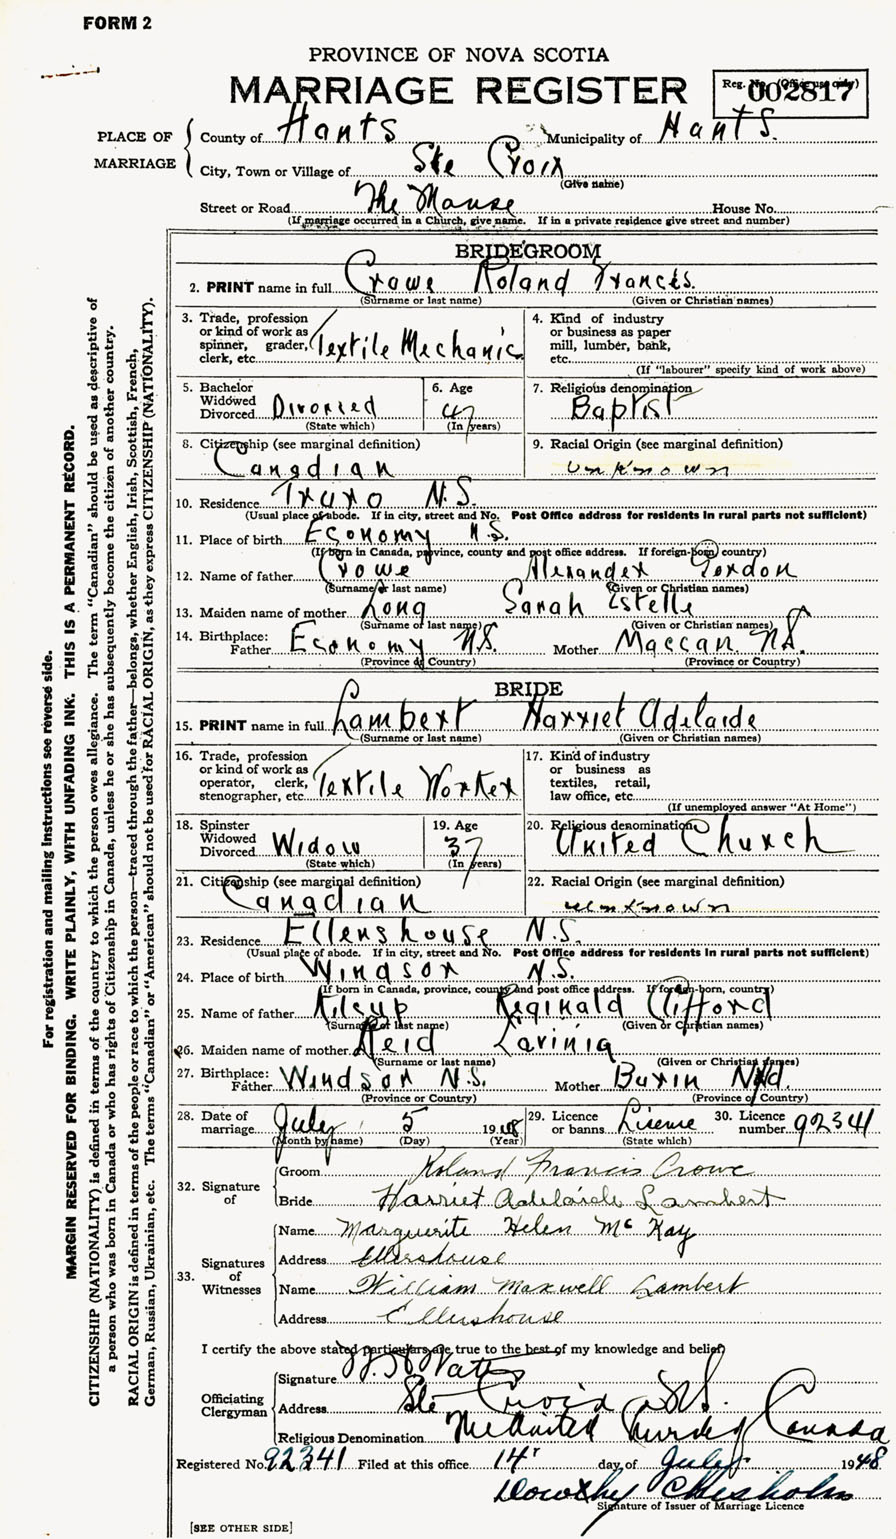 FORM 2
PROVINCE OF NOVA SCOTIA
MARRIAGE REGISTER
Reg. No. (Office use only)
002817
PLACE OF MARRIAGE
County of Hants Municipality of Hants.
City, Town or Village of Ste Croix
(Give name)
Street or Road The Manse House No.
(If marriage occurred in a Church, give name. If in a private residence give street and number)
BRIDEGROOM
2. PRINT name in full Crowe Roland Francis.
(Surname or last name) (Given or Christian names)
3. Trade, profession or kind of work as spinner, grader, clerk, etc. Textile Mechanic
4. Kind of industry or business as paper mill, lumber, bank, etc.
(If "labourer" specify kind of work above)
5. Bachelor Widowed Divorced Divorced
(State which)
6. Age 47
(In years)
7. Religious denomination Baptist
8. Citizenship (see marginal definition) Canadian
9. Racial Origin (see marginal definition) unknown
10. Residence Truro N.S.
(Usual place of abode. If in city, street and No. Post Office address for residents in rural parts not sufficient)
11. Place of birth Economy N.S.
(If born in Canada, province, county and post office address. If foreign-born, country)
12. Name of father Crowe Alexander Gordon
(Surname or last name) (Given or Christian names)
13. Maiden name of mother Long Sarah Estelle
(Surname or last name) (Given or Christian names)
14. Birthplace: Father Economy N.S. Mother Maccan N.S.
(Province or Country) (Province or Country)
BRIDE
15. PRINT name in full Lambert Harriet Adelaide
(Surname or last name) (Given or Christian names)
16. Trade, profession or kind of work as operator, clerk, stenographer, etc. Textile Worker
17. Kind of industry or business as textiles, retail, law office, etc.
(If unemployed answer "At Home")
18. Spinster Widowed Divorced Widow
(State which)
19. Age 37
(In years)
20. Religious denomination United Church
21. Citizenship (see marginal definition) Canadian
22. Racial Origin (see marginal definition) unknown
23. Residence Ellershouse N.S.
(Usual place of abode. If in city, street and No. Post Office address for residents in rural parts not sufficient)
24. Place of birth Windsor N.S.
(If born in Canada, province, county and post office address. If foreign-born, country)
25. Name of father Kilcup Reginald Clifford
(Surname or last name) (Given or Christian names)
26. Maiden name of mother Reid Lavinia
(Surname or last name) (Given or Christian names)
27. Birthplace: Father Windsor N.S. Mother Burin Nfld.
(Province or Country) (Province or Country)
28. Date of marriage July 5 1948
(Month by name) (Day) (Year)
29. Licence or banns License
(State which)
30. Licence number 92341
32. Signature of
Groom Roland Francis Crowe
Bride Harriet Adelaide Lambert
33. Signatures of Witnesses
Name Marguerite Helen McKay
Address Ellershouse
Name William Maxwell Lambert
Address Ellershouse
I certify the above stated particulars are true to the best of my knowledge and belief,
Officiating Clergyman
Signature
Address Ste Croix N.S.
Religious Denomination The United Church of Canada
Registered No. 92341 Filed at this office 14 day of July 1948
Dorothy Chisholm
Signature of Issuer of Marriage Licence
[SEE OTHER SIDE]
For registration and mailing instructions see reverse side.
MARGIN RESERVED FOR BINDING. WRITE PLAINLY, WITH UNFADING INK. THIS IS A PERMANENT RECORD.
CITIZENSHIP (NATIONALITY) is defined in terms of the country to which the person owes allegiance. The term "Canadian" should be used as descriptive of
a person who was born in Canada or who has rights of Citizenship in Canada, unless he or she has subsequently become the citizen of another country.
RACIAL ORIGIN is defined in terms of the people or race to which the person—traced through the father—belongs, whether English, Irish, Scottish, French,
German, Russian, Ukrainian, etc. The terms "Canadian" or "American" should not be used for RACIAL ORIGIN, as they express CITIZENSHIP (NATIONALITY).